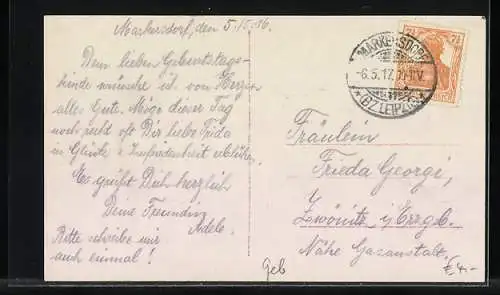 Markersdorf, den 5.5.16.
Dem lieben Geburtstags-
kinde wünsche ich von Herzen
alles Gute. Möge dieser Tag
noch recht oft Dir liebe Frida
in Glücke u. Zufriedenheit erblühen.
Es grüßt Dich herzlich
Deine Freundin
Adele.
Bitte schreibe mir
auch einmal!
MARKERSDORF
-6.5.17.
* (BZ. LEIPZIG)
7½
7½
Fräulein
Frieda Georgi,
Zwönitz i/Erzgb.
Nähe Gasanstalt.
Geb
€ 4.-